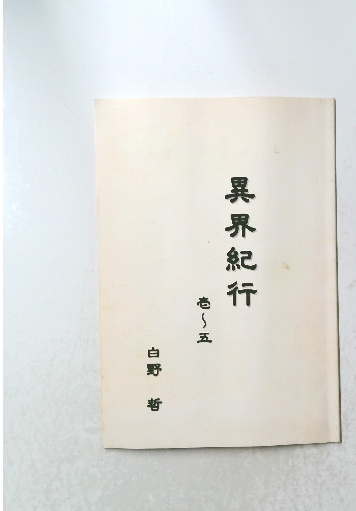 異界紀行
壱～五
白野 哲